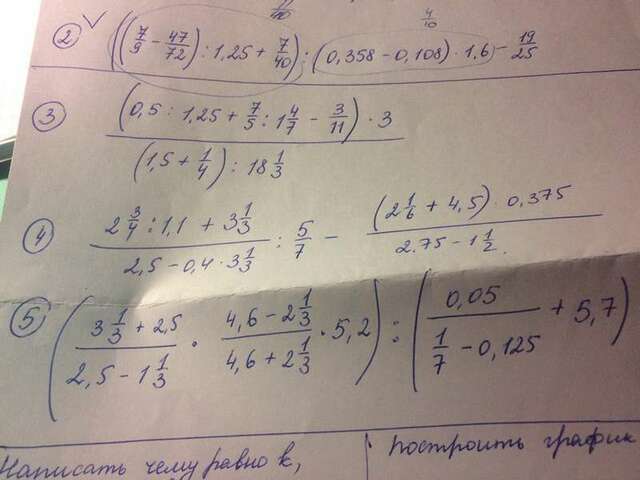 11/40
4/10
② ✓ ((7/9 - 47/72) : 1,25 + 7/40) : (0,358 - 0,108) · 1,6 - 19/25
③ ((0,5 : 1,25 + 7/5 : 1 4/7 - 3/11) · 3) / ((1,5 + 1/4) : 18 1/3)
④ (2 3/4 : 1,1 + 3 1/3) / (2,5 - 0,4 · 3 1/3) : 5/7 - ((2 1/6 + 4,5) · 0,375) / (2.75 - 1 1/2)
⑤ ((3 1/3 + 2,5) / (2,5 - 1 1/3) · (4,6 - 2 1/3) / (4,6 + 2 1/3) · 5,2) : (0,05 / (1/7 - 0,125) + 5,7)
Написать чему равно k, построить график